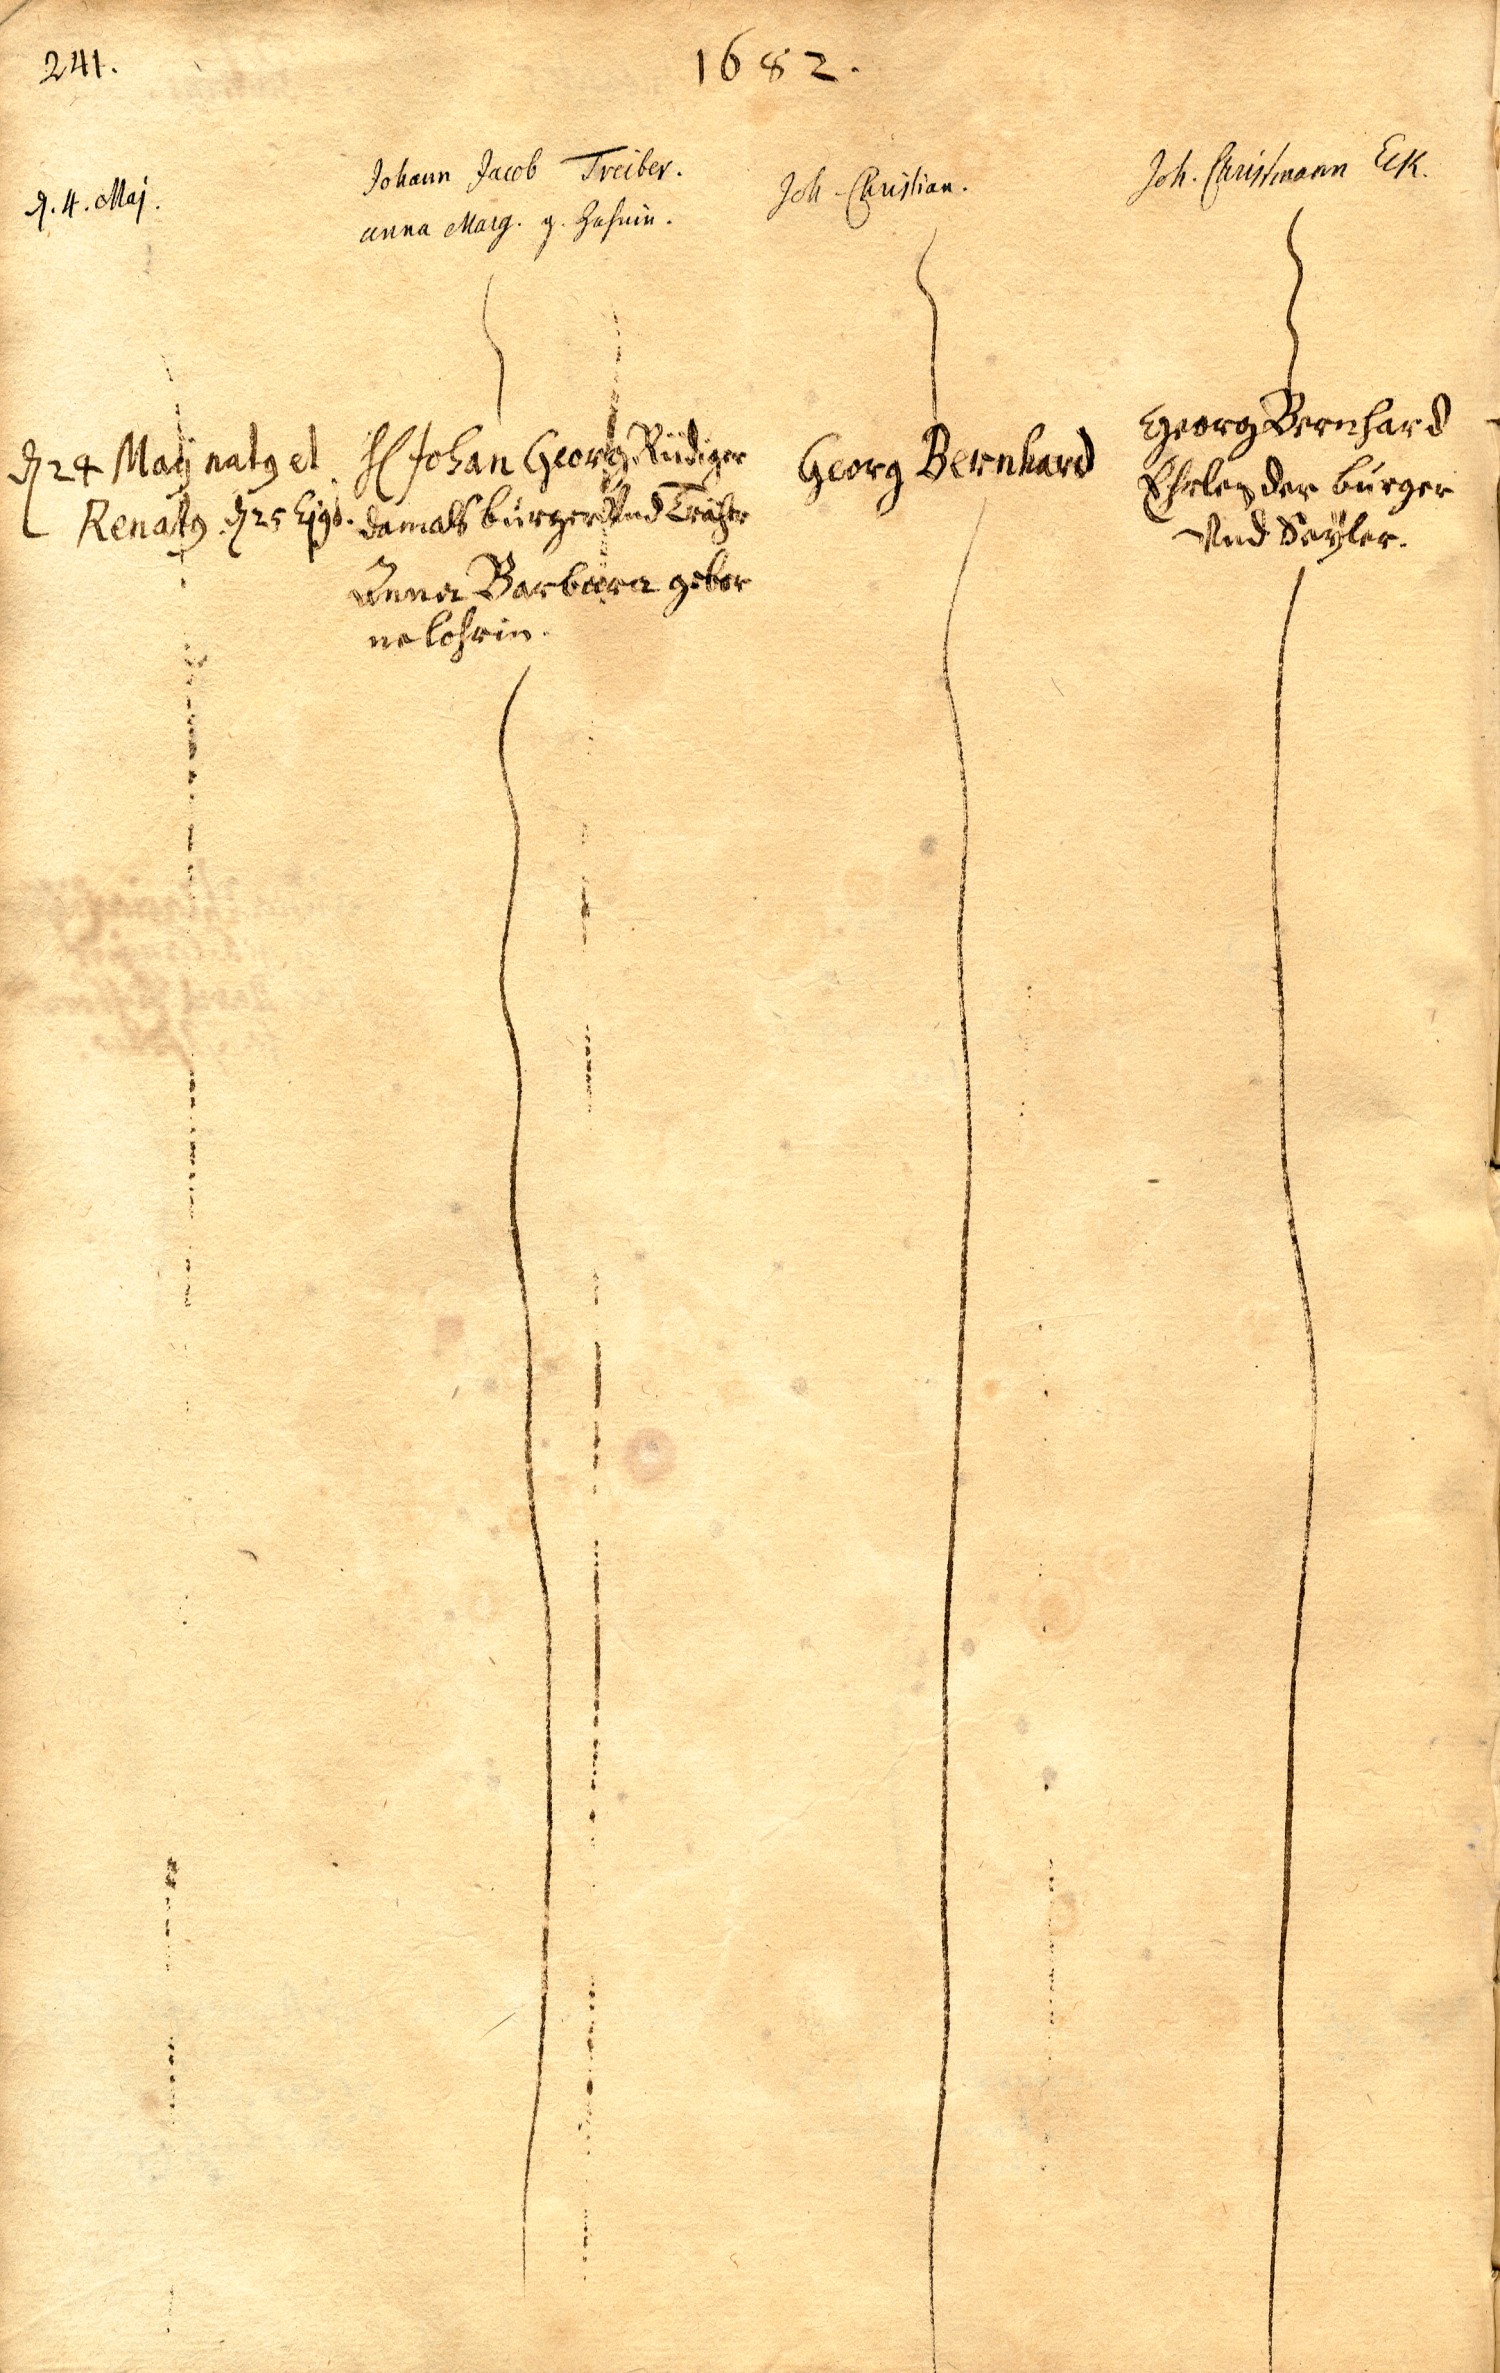 241.
1682.
d. 4. Maj.
Johann Jacob Treiber.
anna Marg. g. Hasnin.
Joh. Christian.
Joh. Christmann Eck.
d 24 Maij nat9 et
Renat9 d 25 Ej9d.
H Johan Georg Rüdiger
damals burger Vnd
Anna Barbara gebor
ne Lohrin.
Georg Bernhard
Georg Bernhard
der burger
Vnd Seÿler.